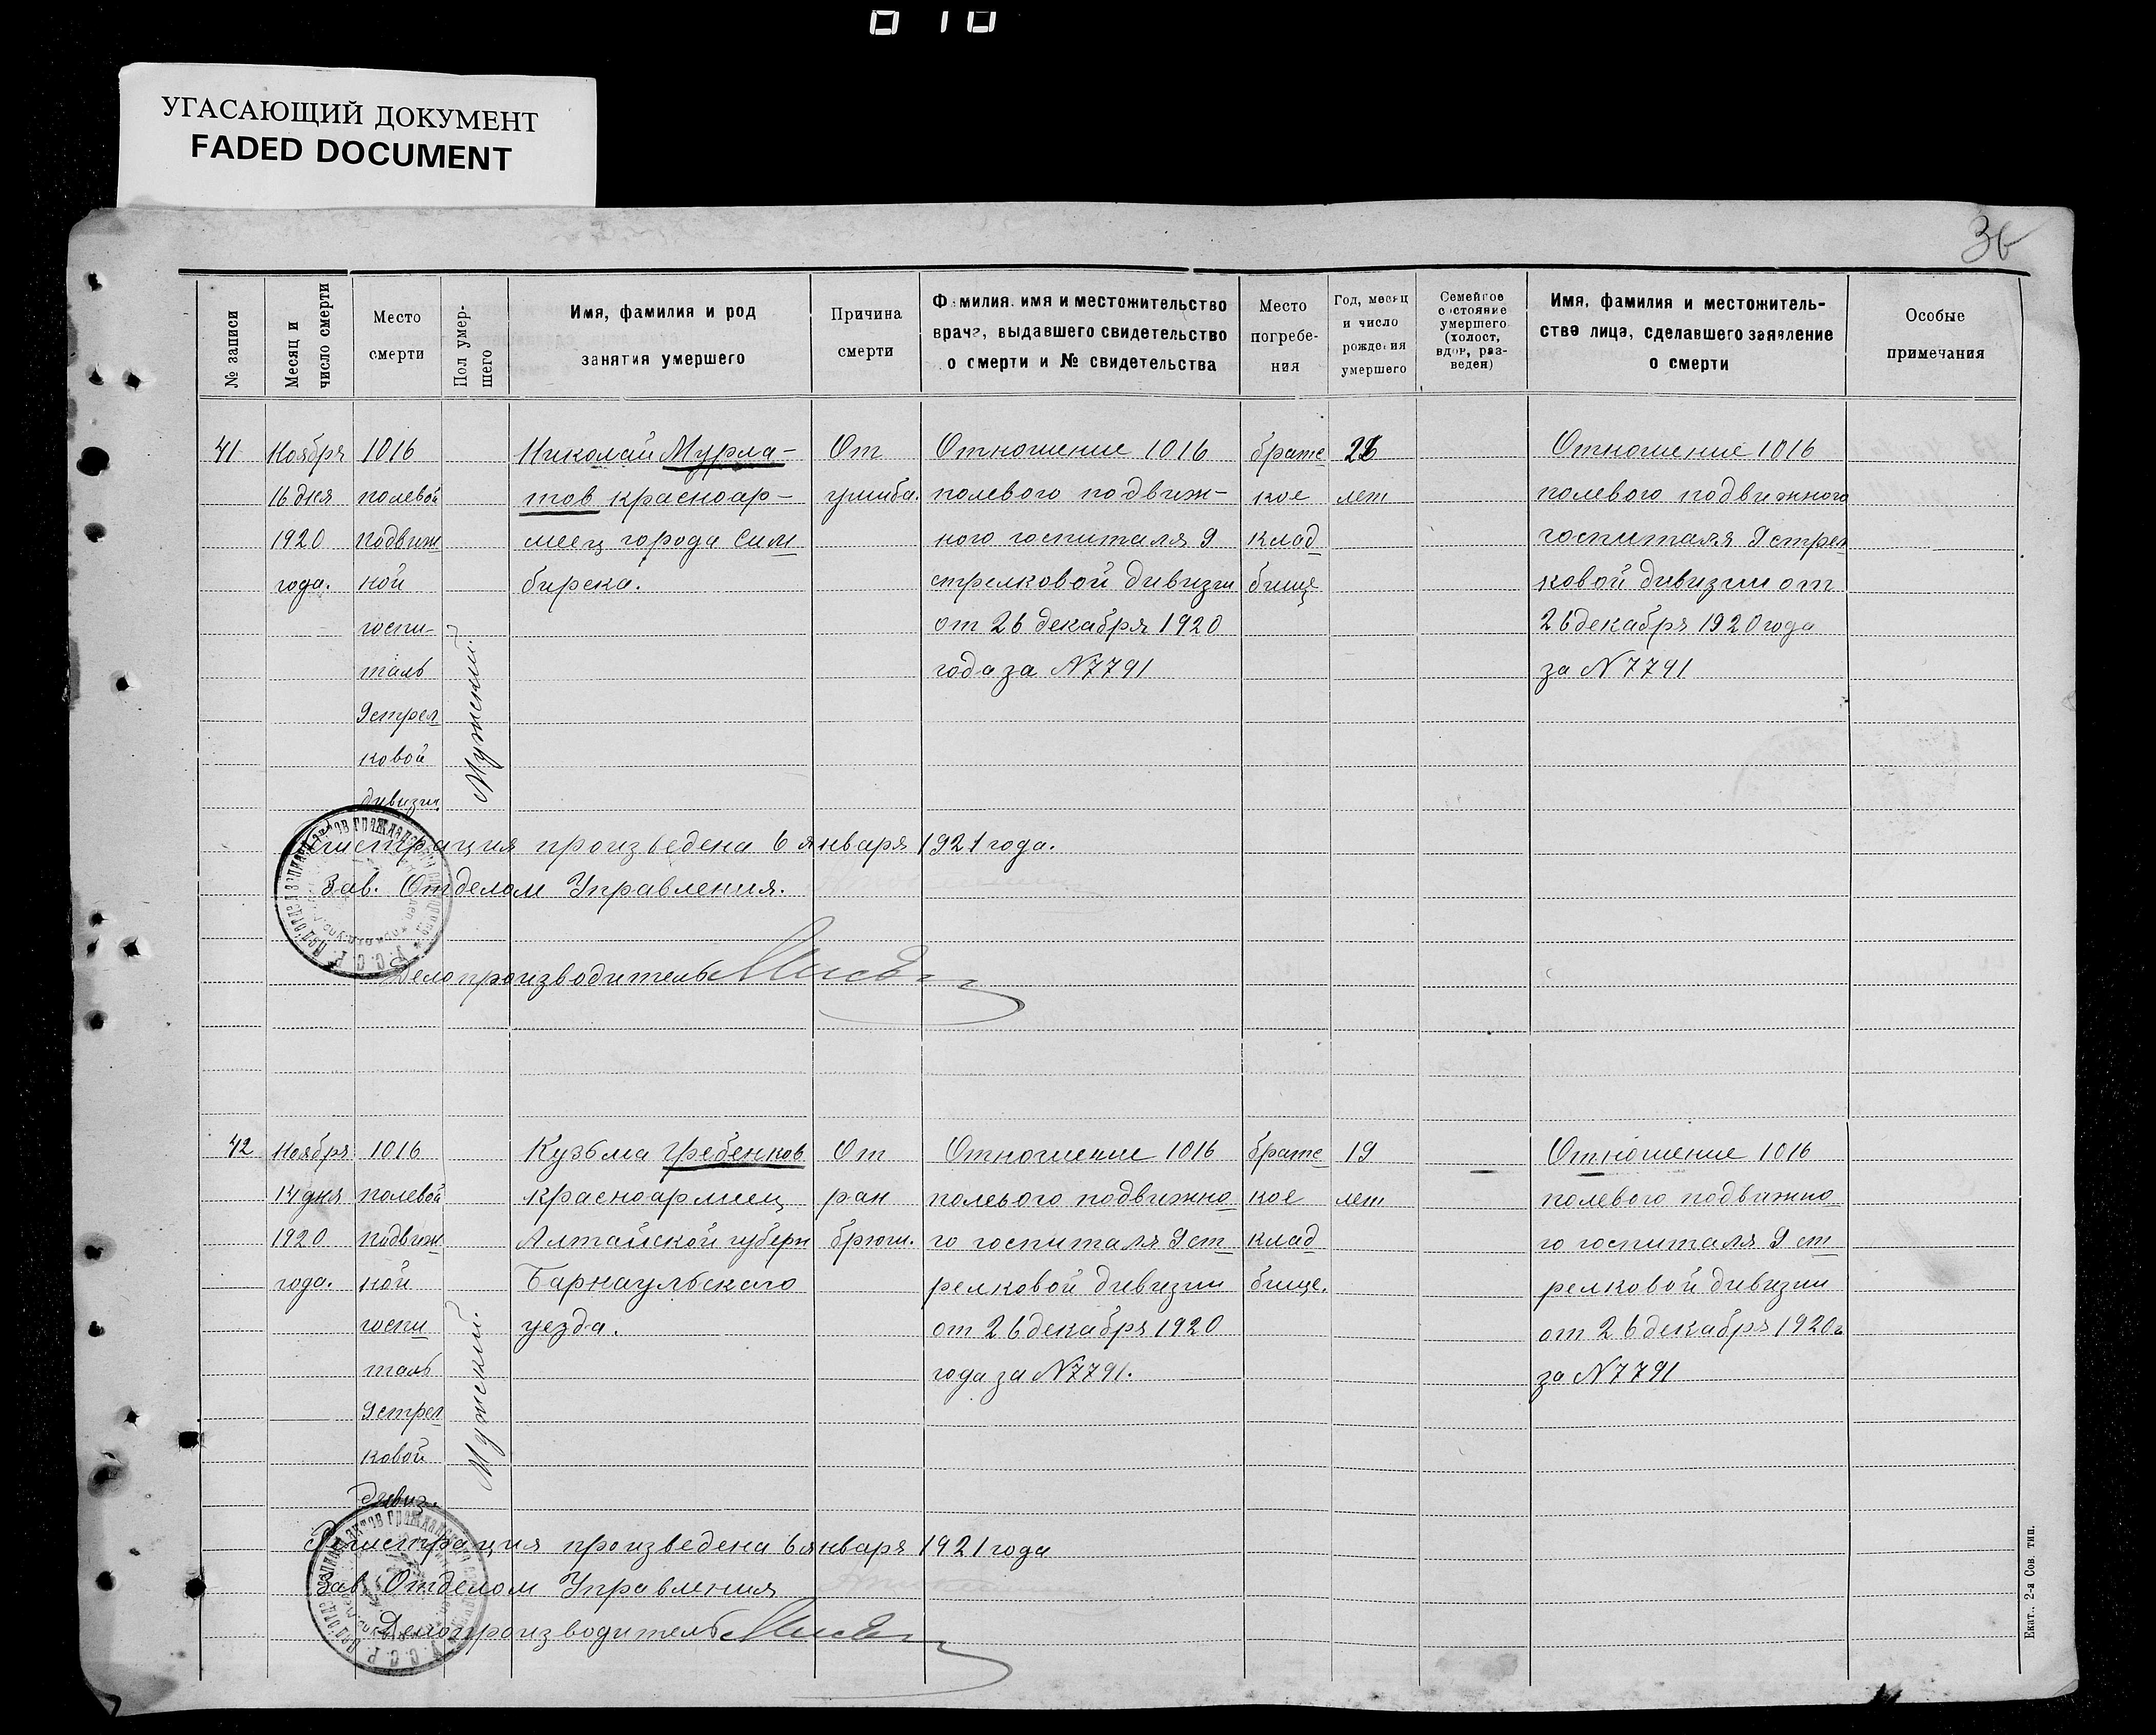 УГАСАЮЩИЙ ДОКУМЕНТ
FADED DOCUMENT
36
№ записи
Месяц и число смерти
Место смерти
Пол умер-шего
Имя, фамилия и род занятия умершего
Причина смерти
Фамилия, имя и местожительство врача, выдавшего свидетельство о смерти и № свидетельства
Место погребе-ния
Год, месяц и число рождения умершего
Семейное состояние умершего (холост, вдов, раз-веден)
Имя, фамилия и местожитель-ства лица, сделавшего заявление о смерти
Особые примечания
41
Ноября
16 дня
1920
года.
1016
полевой
подвиж
ной
госпи-
таль
9 стрел
ковой
дивизии
Мужской.
Николай Мурла-
тов красноар-
меец города Сим
бирска.
От
Отношение 1016
полевого подвиж-
ного госпиталя 9
стрелковой дивизии
от 26 декабря 1920
года за N 7791
братс
кое
клад
бище
лет
Отношение 1016
полевого подвижного
госпиталя 9 стрел
ковой дивизии от
26 декабря 1920 года
за N 7791
Регистрация произведена 6 января 1921 года.
Зав. Отделом Управления.
Делопроизводитель
42
Ноября
14 дня
1920
года.
1016
полевой
подвиж
ной
госпи
таль
9 стрел
ковой
дивиз.
Мужский.
Кузьма Гребенков
красноармеец
Алтайской губерн
Барнаульского
уезда.
От
ран
брюш.
Отношение 1016
полевого подвижно
го госпиталя 9 ст
релковой дивизии
от 26 декабря 1920
года за N 7791.
братс
кое
клад
бище.
19
лет
Отношение 1016
полевого подвижно
го госпиталя 9 ст
релковой дивизии
от 26 декабря 1920 г
за N 7791
Регистрация произведена 6 января 1921 года
Зав. Отделом Управления
Делопроизводитель
Екат., 2-я Сов. тип.